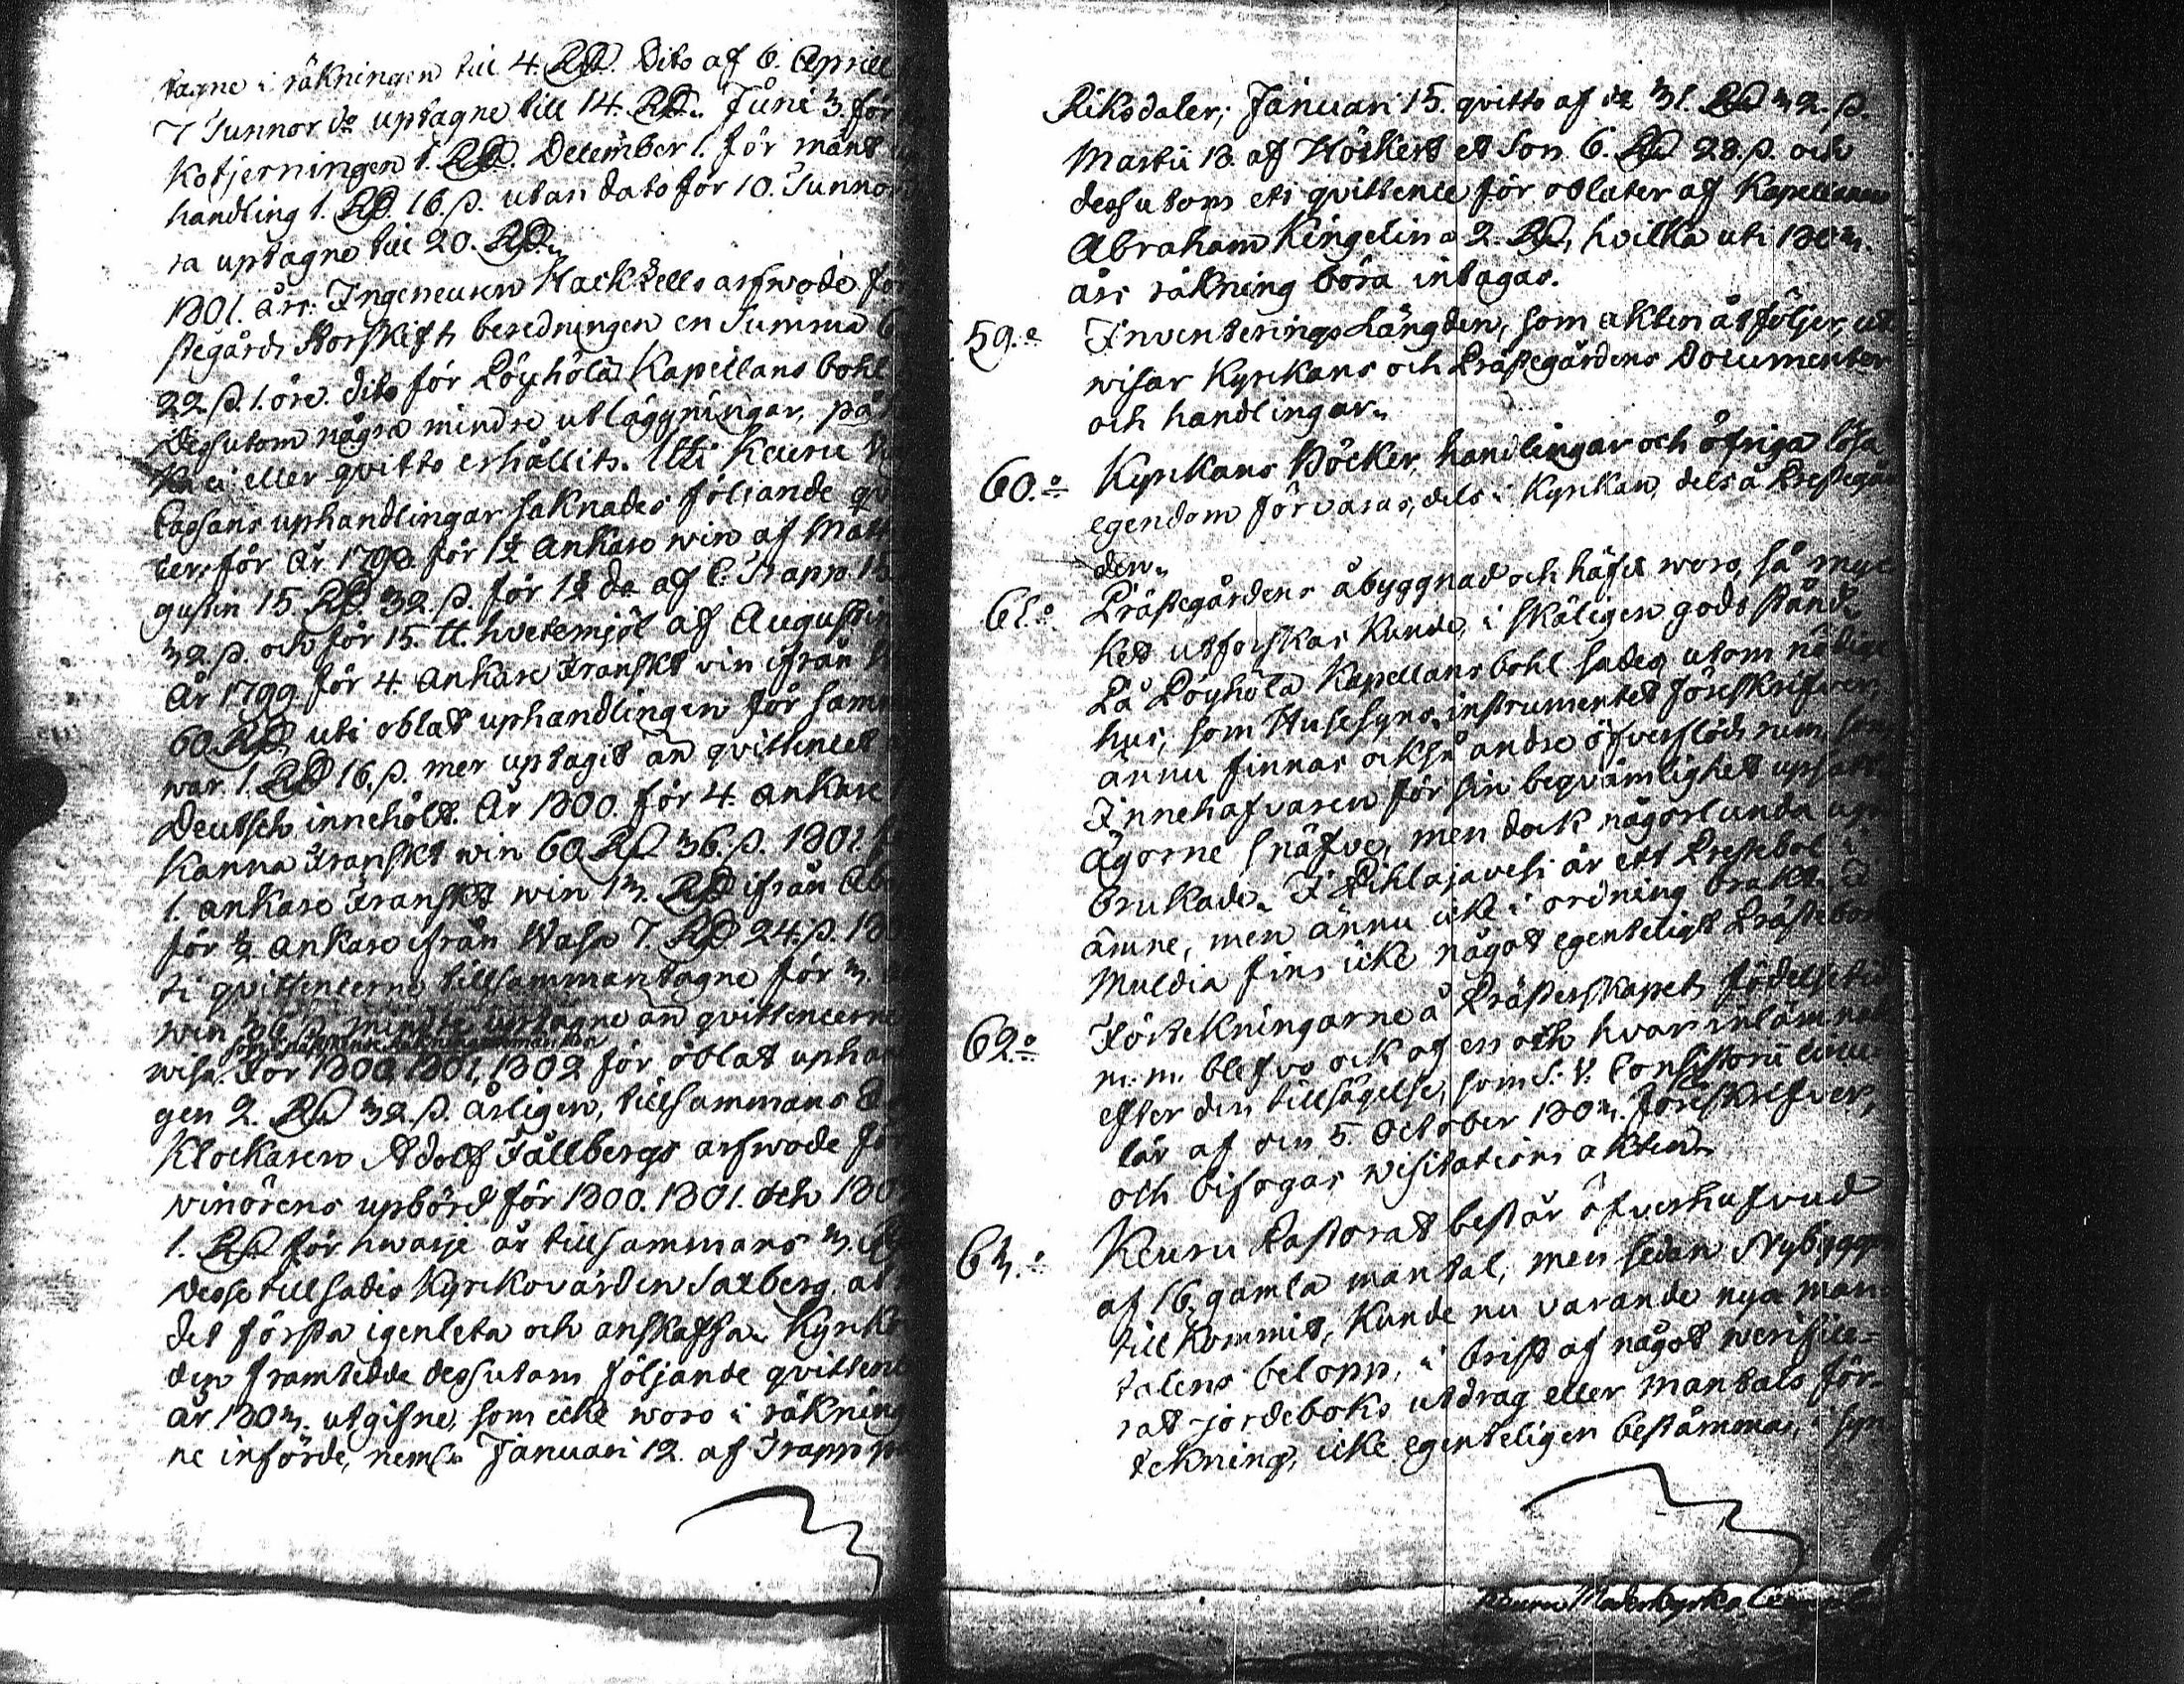 tagne i räkningen till 4. RD. Dito af 6. Aprill
7 Tunnor do uptagne till 14. RD. Juni 3. för
kotjerningen 1. RD. December 1. för mant
handling 1. RD. 16. s. utan dato för 10. Tunnor
ra uptagne till 20. RD.
1801. års: Ingenieuren Hackzells arfwode för
stegårds Storskifts beredningen en Summa
22 s. 1. öre. dito för Löyhölä Kapellans bohl
Dessutom några mindre utläggningar, på
ka ei eller qvitto erhållits. Uti Keuru
Cassans uphandlingar saknades följande
cer, för År 1798 för 1½ Ankare win af Matt
gustin 15 RD. 32. s. för 1½ do af C. Trapp 15
32. s. och för 15. tt. hvetemjöl af Augustin
År 1799 för 4. ankare Franskt vin ifrån
60. RD, uti oblat uphandlingen för samm
war 1. RD 16. s. mer uptagit än qvittencet
Deutsch innehölt. År 1800. för 4. ankare
Kanna Franskt win 60 RD 36. s. 1801.
1. ankare Franskt win 13. RD ifrån Åb
för ½ ankare ifrån Wasa 7. RD 24. s. 180
ti qvittencerne tillsammantagne för 3.
win 36 s. mindre uptagne än qvittencerne
wisa. För 1800, 1801, 1802 för oblat uphan
gen 2. RD 32 s. årligen, tillsammans 8
Klockaren Adolf Fällbergs arfwode för
winörens upbörd för 1800. 1801. och 180
1. RD för hwarje år tillsammans 3. RD
Desse tillsades Kyrkovärden Saxberg, at
det första igenleta och anskaffa. Kyrko
den framtedde dessutom följande qvittenc
år 1803. utgifne, som icke woro i räkning
ne införde, neml. Januari 12. af Trapp
Riksdaler; Januari 15. qvitto af do 31. RD 32. s.
Martii 18. af Höckert et Son 6. RD 28. s. och
dessutom ett qvittence för oblater af Kapellanen
Abraham Kingelin a 2. RD, hvilka uti 1803.
års räkning böra intagas.
59.o Inventerings Längden, som akten åtföljer, ut
wisar Kyrkans och Prästegårdens Documenter
och handlingar.
60.o Kyrkans Böcker, handlingar och öfriga lösa
egendom förvaras, dels i Kyrkan, dels å Prestegår
den.
61.o Prästegårdens åbyggnad och häfd woro, så myc
ket utforskas kunde, i skäligen godt stånd.
På Löyhölä Kapellans bohl sades, utom nödige
hus, som Husesyns instrumentet föreskrifver
ännu finnas också andre öfverflöds rum, som
Innehafvaren för sin beqvämlighet upsatt.
Ägorne snäfve, men dock någorlunda up
brukade. I Pihlajavesi är ett Prestebol i
ämne, men ännu icke i ordning brakt. I
Muldia fins icke något egenteligt Prästebol
62.o Förtekningarne å Prästerskapets födelsetid
m. m. blefvo ock af en och hvar inlämnad
efter den tillsägelse, som S. V. Consistorii Circu
lär af den 5. October 1803. föreskrifver,
och bifogas wisitations akten.
63.o Keuru Pastorat består öfverhufvud
af 16. gamla mantal; men sedan Nybygge
tillkommit, kunde nu varande nya man
talens belopp, i brist af något werifice=
rat jordeboks utdrag eller mantals för=
tekning, icke egenteligen bestämmas, i syn
Keuru Moderkyrko